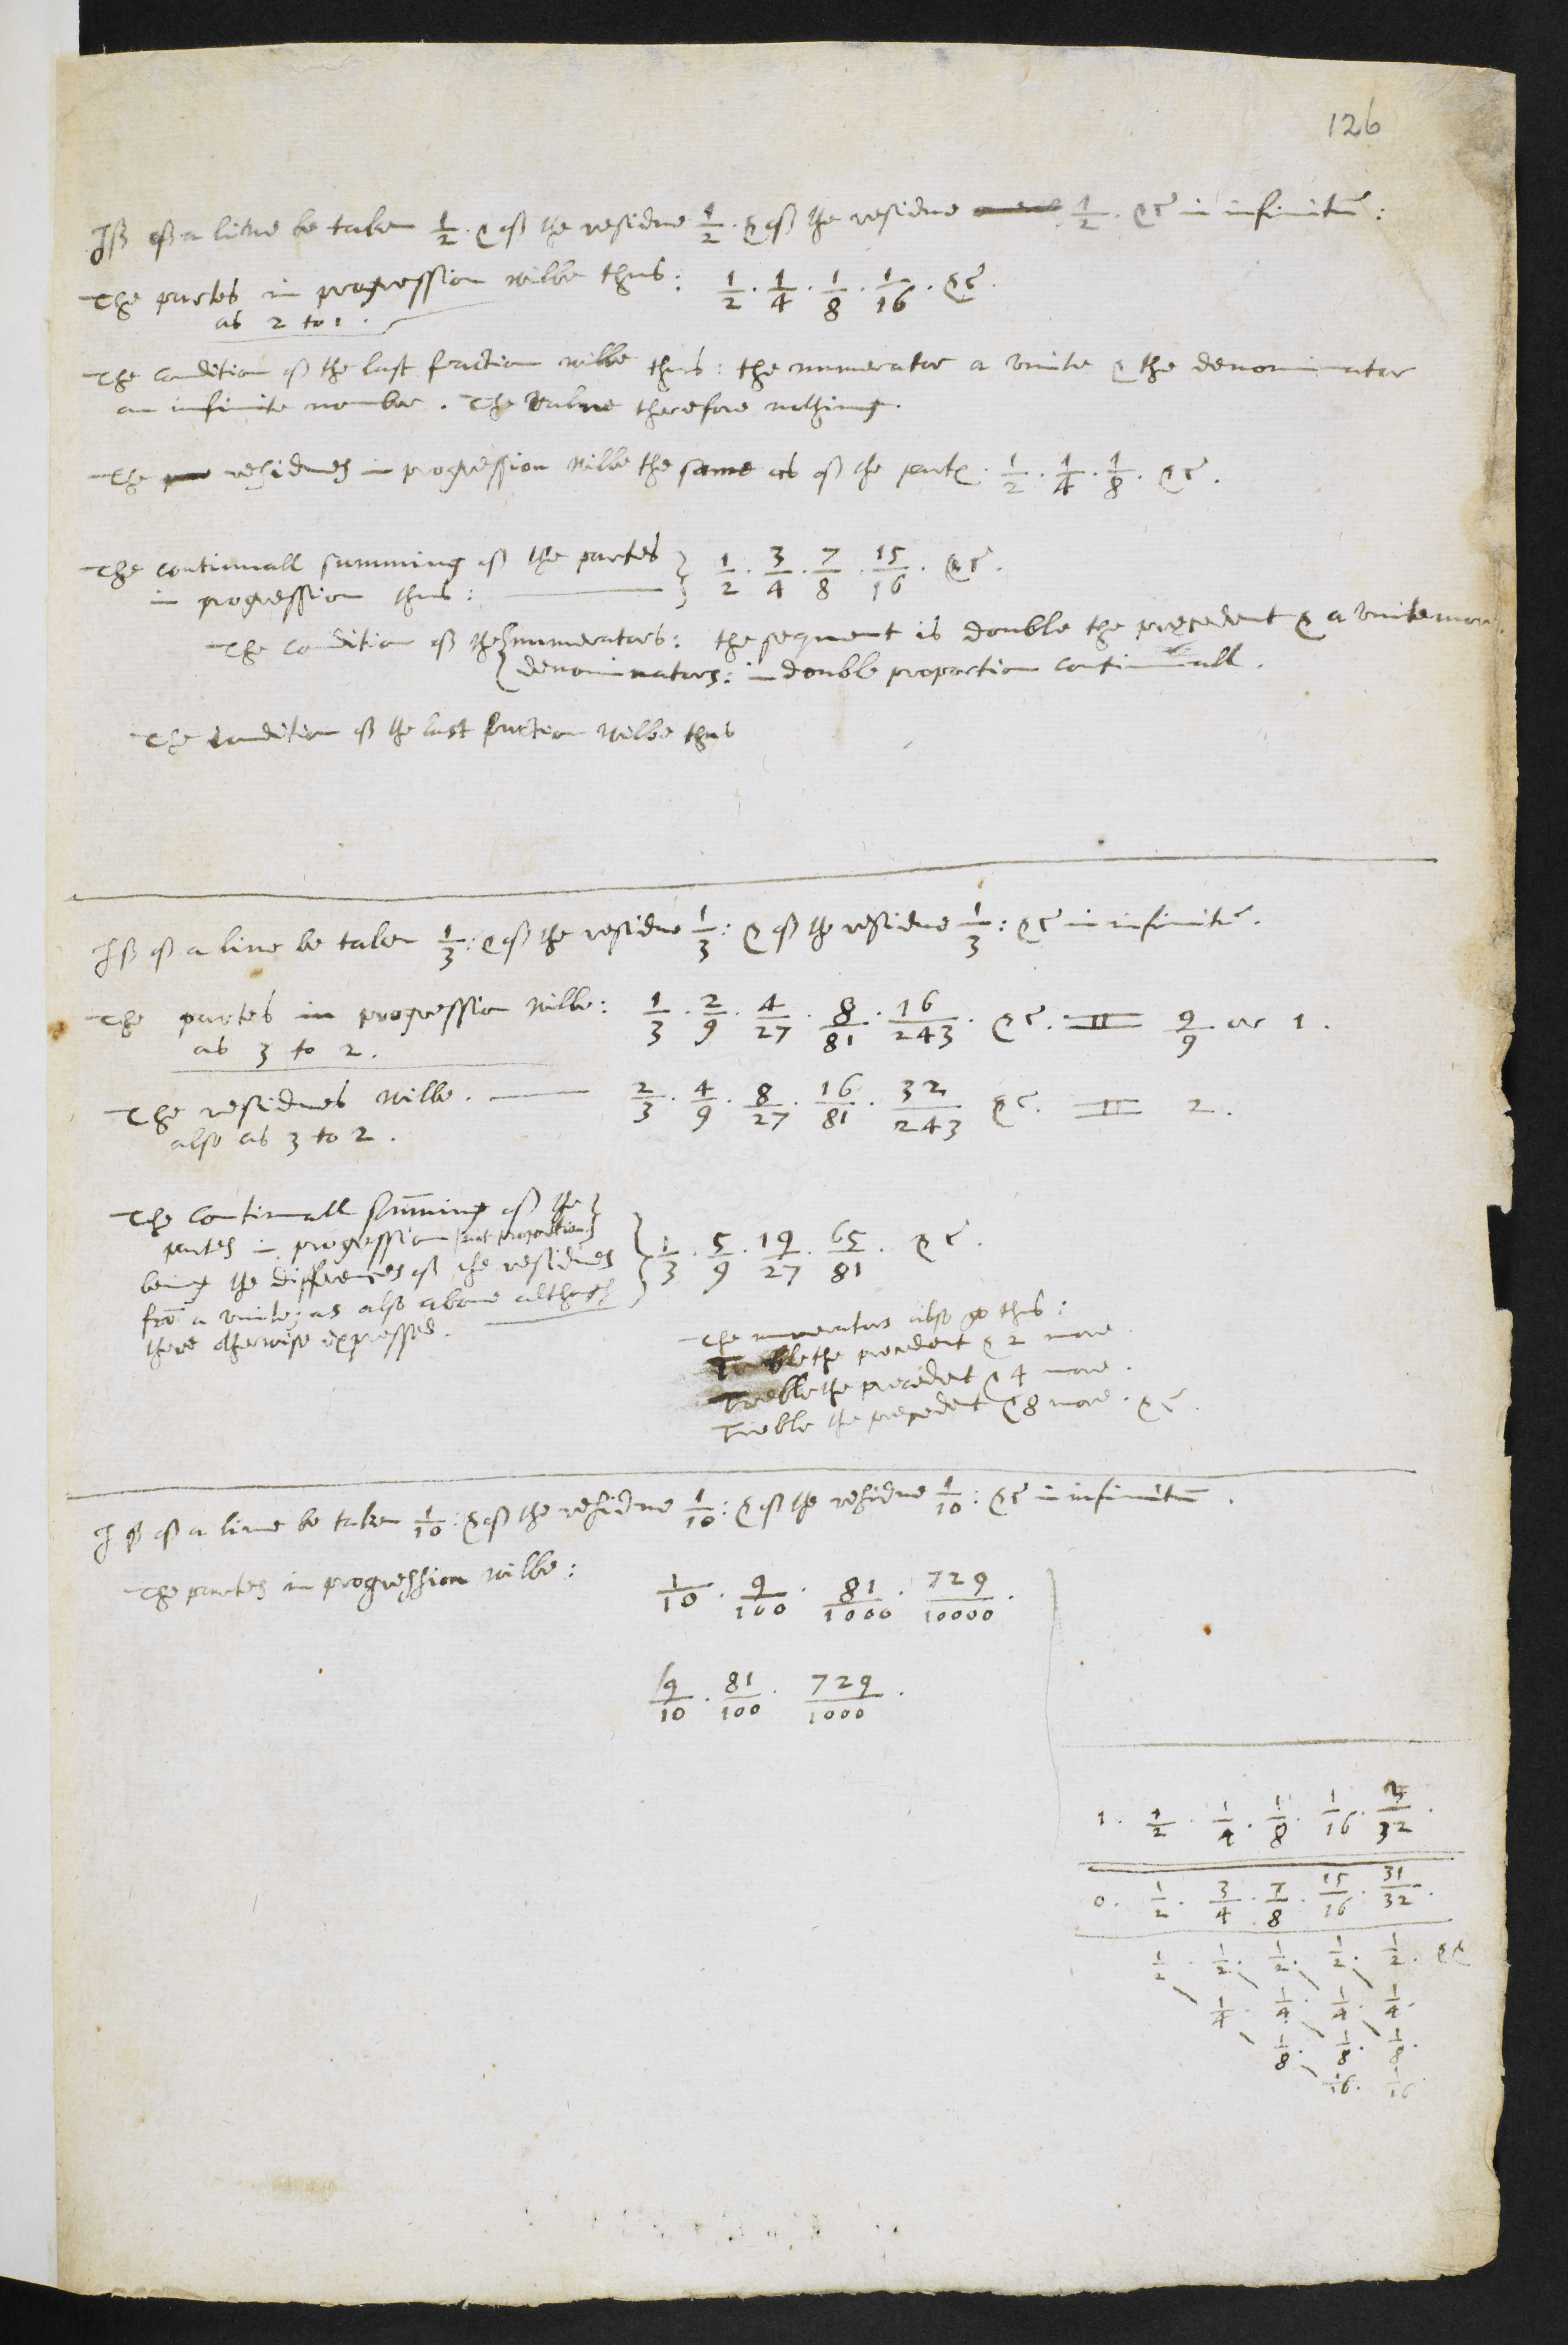 126
If of a line be taken 1/2 . & of the residue 1/2 . & of the residue 1/2 . &c in infinitū :
The partes in progression wilbe thus : 1/2 . 1/4 . 1/8 . 1/16 . &c .
as 2 to 1 .
The condition of the last fraction wilbe thus : the numerator a unite & the denominator
an infinite number . The value therefore nothing .
The residues in progression wilbe the same as of the partes . 1/2 . 1/4 . 1/8 . &c .
The continuall summing of the partes } 1/2 . 3/4 . 7/8 . 15/16 . &c .
in progression thus :
The condition of the { numerators : the sequent is double the precedent & a unite more
denominators : in double proportion continuall .
The condition of the last fraction wilbe thus
If of a line be taken 1/3 : & of the residue 1/3 : & of the residue 1/3 : &c in infinitū .
The partes in progression wilbe : 1/3 . 2/9 . 4/27 . 8/81 . 16/243 . &c . = 9/9 or 1 .
as 3 to 2 .
The residues wilbe . 2/3 . 4/9 . 8/27 . 16/81 . 32/243 &c . = 2 .
also as 3 to 2 .
The continuall sūming of the
partes in progression (not proportion) } 1/3 . 5/9 . 19/27 . 65/81 . &c .
being the differences of the residues
frō a unite ; as also above although
there otherwise expressed .
The numerators also go thus :
Treble the precedent & 2 more .
Treble the precedent & 4 more .
Treble the precedent & 8 more . &c .
If of a line be taken 1/10 : & of the residue 1/10 : & of the residue 1/10 : &c in infinitum .
The partes in progression wilbe : 1/10 . 9/100 . 81/1000 . 729/10000 .
9/10 . 81/100 . 729/1000 .
1 . 1/2 . 1/4 . 1/8 . 1/16 . /32 .
0 . 1/2 . 3/4 . 7/8 . 15/16 . 31/32 .
1/2 . 1/2 . 1/2 . 1/2 . 1/2 . &c
1/4 . 1/4 . 1/4 . 1/4 .
1/8 . 1/8 . 1/8 .
1/16 . 1/16